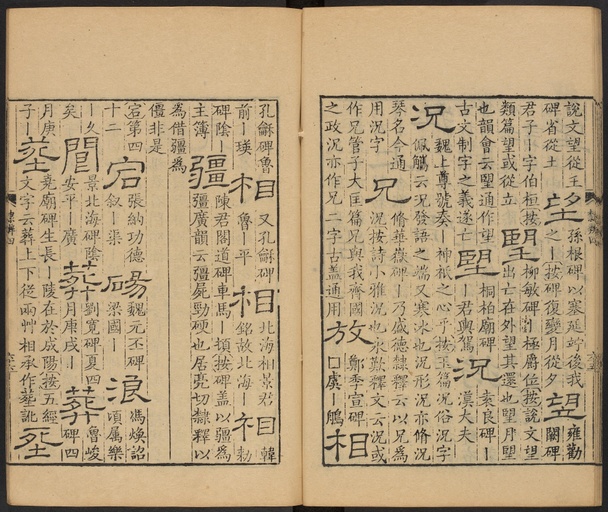 說文望從王
碑省從土
望
孫根碑以塞延竚後我
之｜按碑復變月從夕
望
雍勸
闕碑
君子｜字伯桓按
類篇望或從立
朢
柳敏碑㑹極爵位按說文望
出亡在外望其還也朢月朢
也韻會云朢通作望
古文制字之義遂亡
朢
桐柏廟碑
｜君輿駕
況
袁良碑｜
漢大夫
況
魏上尊號奏｜神祇之心乎按玉篇況俗況字
佩觹云況發語之端又寒冰也況形況亦脩況
琴名今通
用況字
兄
脩華嶽碑｜乃盛德隸釋云以兄為
況按詩小雅況也永歎釋文云況或
作兄管子大匡篇兄與我齊國
之政況亦作兄二字古蓋通用
放
鄭季宣碑
□虞｜鵰
相
孔龢碑魯
前｜瑛
相
又孔龢碑
魯｜平
相
北海相景君
銘故北海｜
相
韓
勑
碑陰｜
主簿
疆
陳君閣道碑車馬｜頓按碑蓋以疆為
彊廣韻云彊屍勁硬也居亮切隸釋以
為借疆為
僵非是
宕第四
十二
宕
張納功德
敘｜渠
碭
魏元丕碑
梁國｜
浪
馮煥詔
頃属樂
｜久
矣
閬
景北海碑陰
安平｜廣
葬
劉寬碑夏四
月庚戌｜
葬
魯峻
碑四
月庚
子｜
塟
堯廟碑生長｜陵在於成陽按五經
文字云葬上下從兩艸相承作塟訛